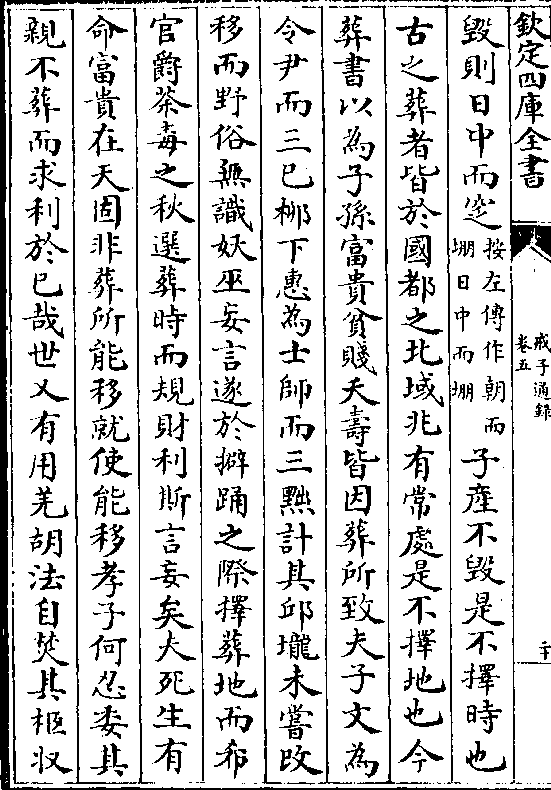 欽定四庫全書
戒子通録
卷五
二十
毁則日中而窆按左傳作朝而堋日中而堋子產不毁是不擇時也
古之葬者皆於國都之北域兆有常處是不擇地也今
葬書以為子孫富貴貧賤夭壽皆因葬所致夫子文為
令尹而三已栁下惠為士師而三黜計其邱壠未嘗改
移而野俗無識妖巫妄言遂於擗踊之際擇葬地而希
官爵荼毒之秋選葬時而規財利斯言妄矣夫死生有
命富貴在天固非葬所能移就使能移孝子何忍委其
親不葬而求利於已哉世又有用羌胡法自焚其柩收